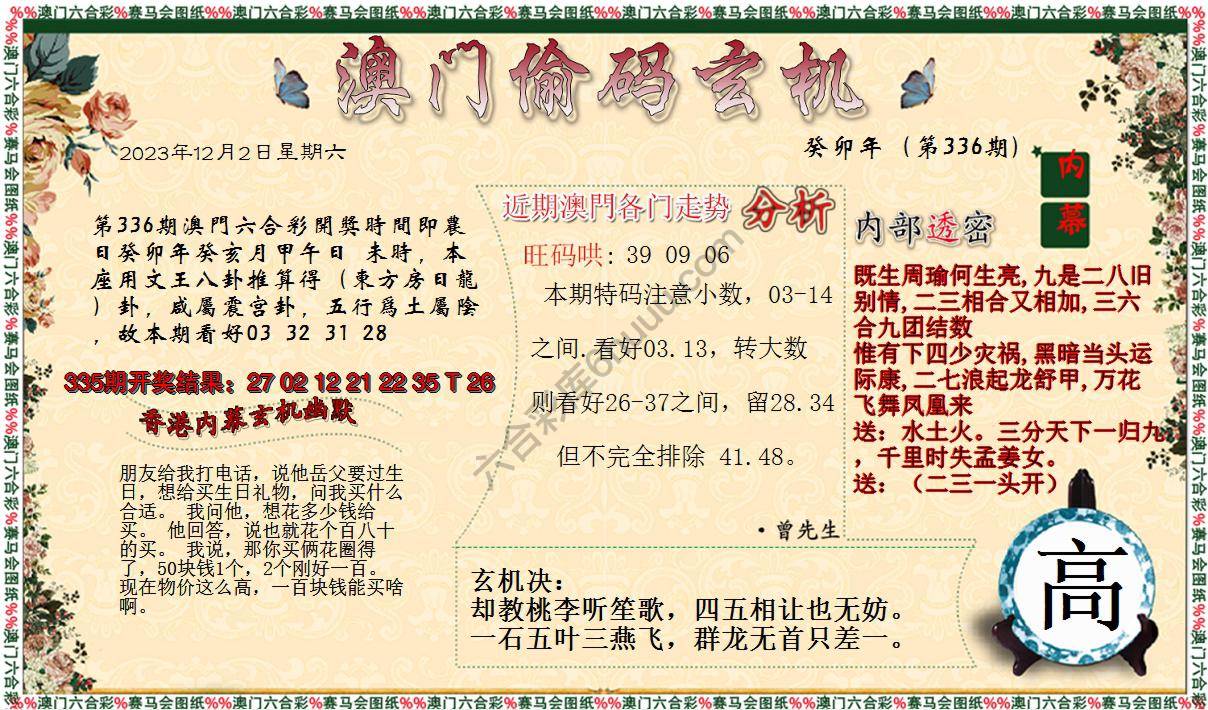 %%澳门六合彩%赛马会图纸%%澳门六合彩%赛马会图纸%%澳门六合彩%赛马会图纸%%澳门六合彩%赛马会图纸%%澳门六合彩%赛马会图纸%%澳门六合彩%赛马会图纸%%
澳门偷码玄机
2023年12月2日星期六
癸卯年（第336期）
内
幕
第336期澳門六合彩開獎時間即農
日癸卯年癸亥月甲午日 未時，本
座用文王八卦推算得（東方房日龍
）卦，咸屬震宫卦，五行爲土屬陰
，故本期看好03 32 31 28
335期开奖结果：27 02 12 21 22 35 T 26
香港内幕玄机幽默
朋友给我打电话，说他岳父要过生
日，想给买生日礼物，问我买什么
合适。 我问他，想花多少钱给
买。 他回答，说也就花个百八十
的买。 我说，那你买俩花圈得
了，50块钱1个，2个刚好一百。
现在物价这么高，一百块钱能买啥
啊。
近期澳門各门走势 分析
旺码哄: 39 09 06
本期特码注意小数，03-14
之间.看好03.13，转大数
则看好26-37之间，留28.34
但不完全排除 41.48。
·曾先生
内部透密
既生周瑜何生亮,九是二八旧
别情,二三相合又相加,三六
合九团结数
惟有下四少灾祸,黑暗当头运
际康,二七浪起龙舒甲,万花
飞舞凤凰来
送：水土火。三分天下一归九
，千里时失孟姜女。
送：（二三一头开）
玄机决：
却教桃李听笙歌，四五相让也无妨。
一石五叶三燕飞，群龙无首只差一。
高